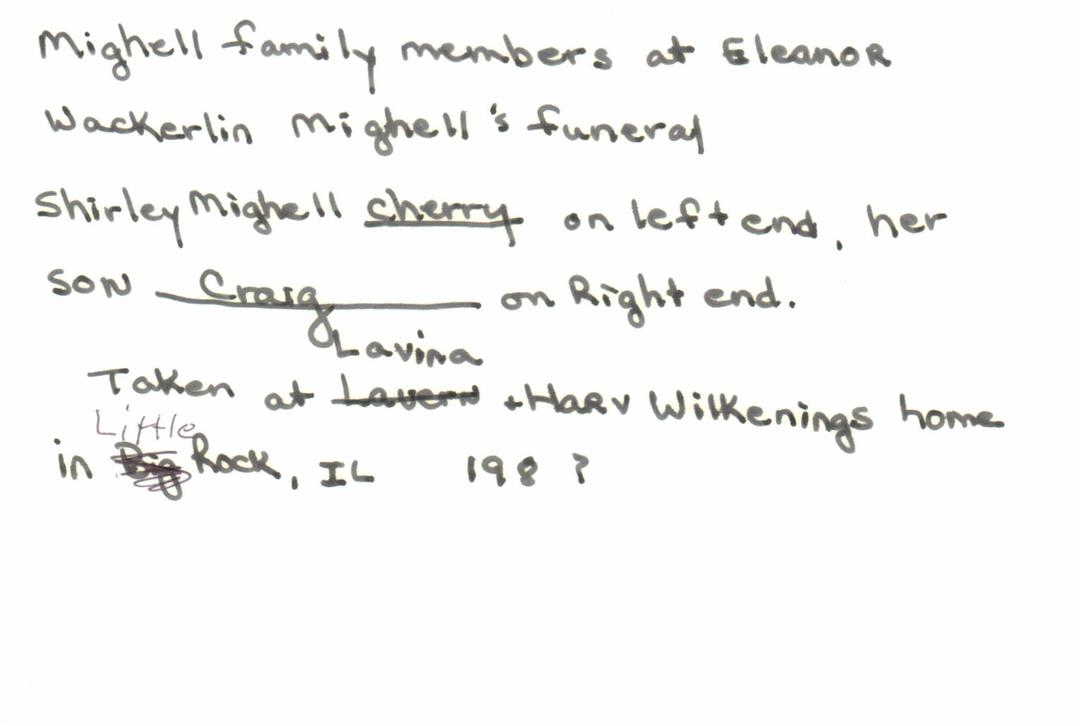 Mighell family members at Eleanor
Wackerlin Mighell's funeral
Shirley Mighell Cherry on left end, her
son Craig on Right end.
Lavina
Taken at Lavern + Harv Wilkenings home
Little
in Big Rock, IL 198?